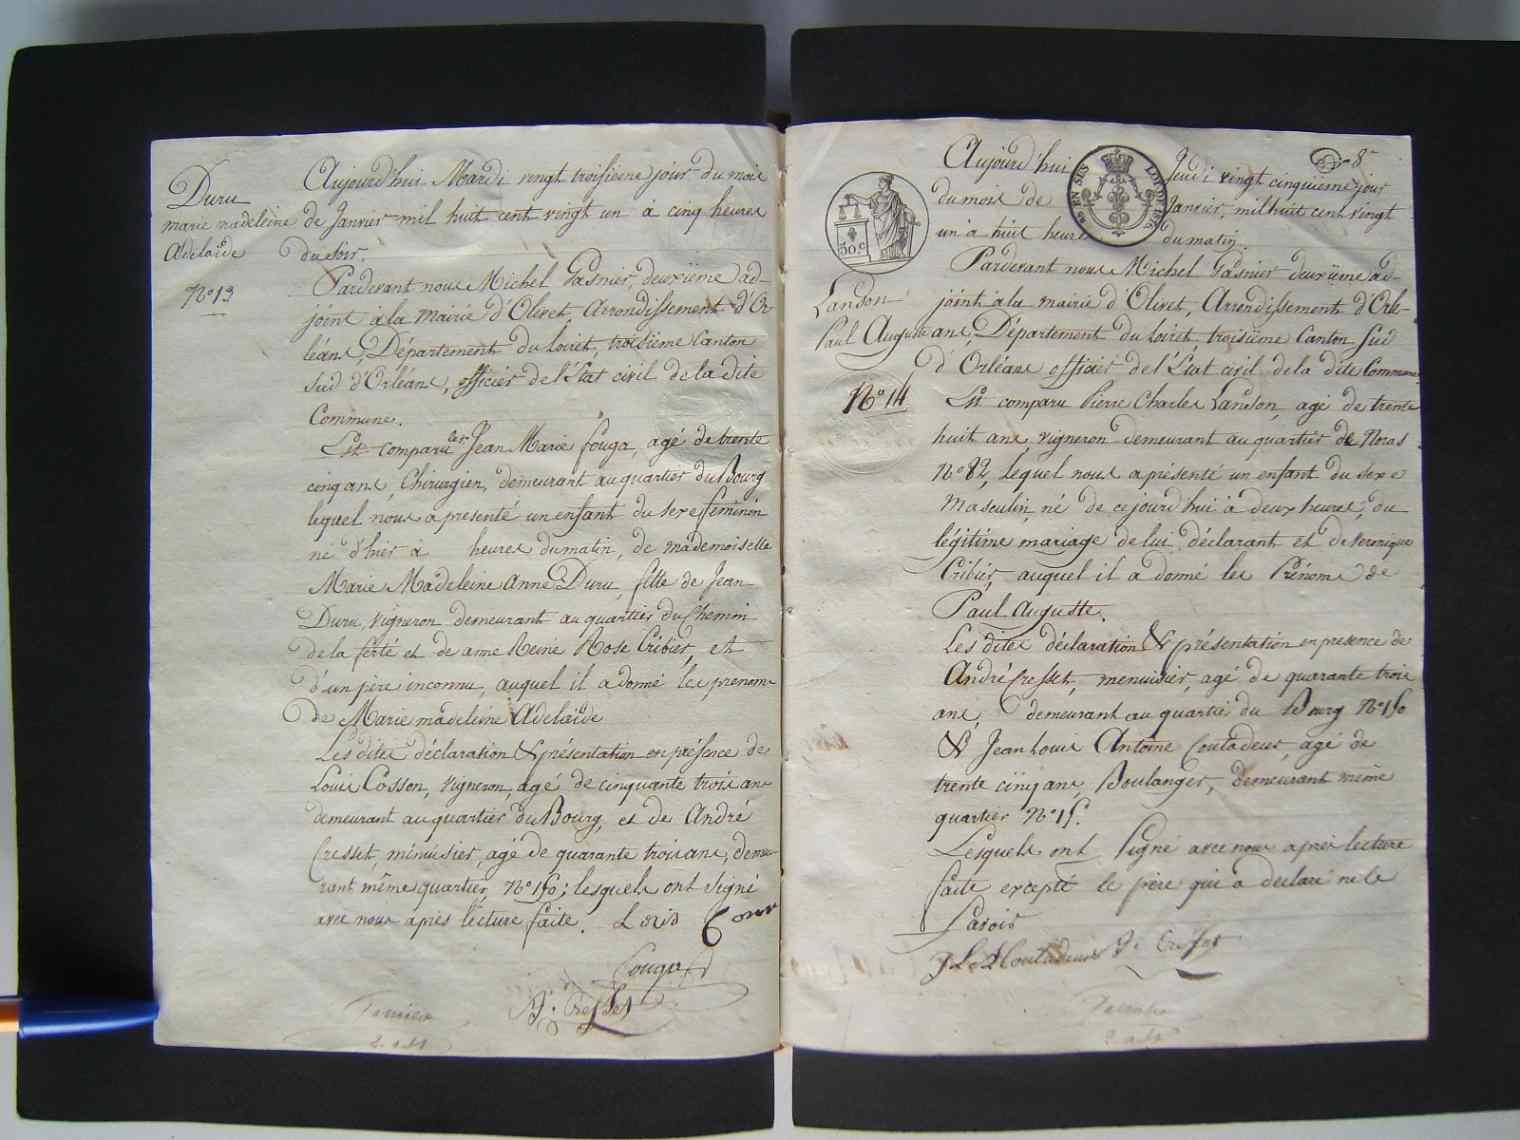 Duru
marie madeleine
Adelaïde
N° 13
Aujourd'hui Mardi vingt troisieme jour du mois
de Janvier mil huit cent vingt un à cinq heures
du soir.
Pardevant nous Michel Gasnier, deuxiéme ad-
joint à la mairie d'Olivet, Arrondissement d'Or
léans, Département du Loiret, troisieme Canton
sud d'Orléans, officier de l'Etat civil de la dite
Commune.
Est comparu Jean Marie fouga, agé de trente
cinq ans, Chirurgien, demeurant au quartier du Bourg
lequel nous a presenté un enfant du sexe feminin
né d'hier à heures du matin, de mademoiselle
Marie Madeleine Anne Duru, fille de Jean
Duru, vigneron demeurant au quartier du Chemin
de la ferté et de anne Reine Rose Cribier, et
d'un père inconnu, auquel il a donné les prenoms
de Marie madeleine Adelaïde
Les dites déclaration & présentation en présence de
Louis Cosson, vigneron, agé de cinquante trois ans
demeurant au quartier du Bourg, et de André
Cresset, minuisier, agé de quarante trois ans, demeu-
rant même quartier, N° 150; lesquels ont signé
avec nous après lecture faite. Louis Coson
Fouga
Cresset
8
30 c
EN SUS
LOI DE 1816
Landon
Paul Auguste
N° 14
Aujourd'hui Jeudi vingt cinquiéme jour
du mois de Janvier, mil huit cent vingt
un à huit heures du matin.
Pardevant nous Michel Gasnier deuxiéme ad-
joint à la mairie d'Olivet, Arrondissement d'Orlé-
ans, Département du Loiret, troisiéme Canton sud
d'Orléans officier de l'Etat civil de la dite Commune.
Est comparu Pierre Charles Landon, agé de trente
huit ans, vigneron demeurant au quartier de Noras
N° 82, lequel nous a présenté un enfant du sexe
Masculin, né de ce jourd'hui à deux heures, du
légitime mariage de lui déclarant et de veronique
Cribier, auquel il a donné les Prénoms de
Paul Auguste.
Les dites déclaration & présentation en presence de
André Cresset, menuisier, agé de quarante trois
ans, demeurant au quartier du Bourg N° 150
& Jean Louis Antoine Coutadeur, agé de
trente cinq ans, Boulanger, demeurant même
quartier N° 15.
Lesquels ont signé avec nous après lecture
faite excepté le père qui a declaré ne le
savoir
J L A Coutadeur Cresset